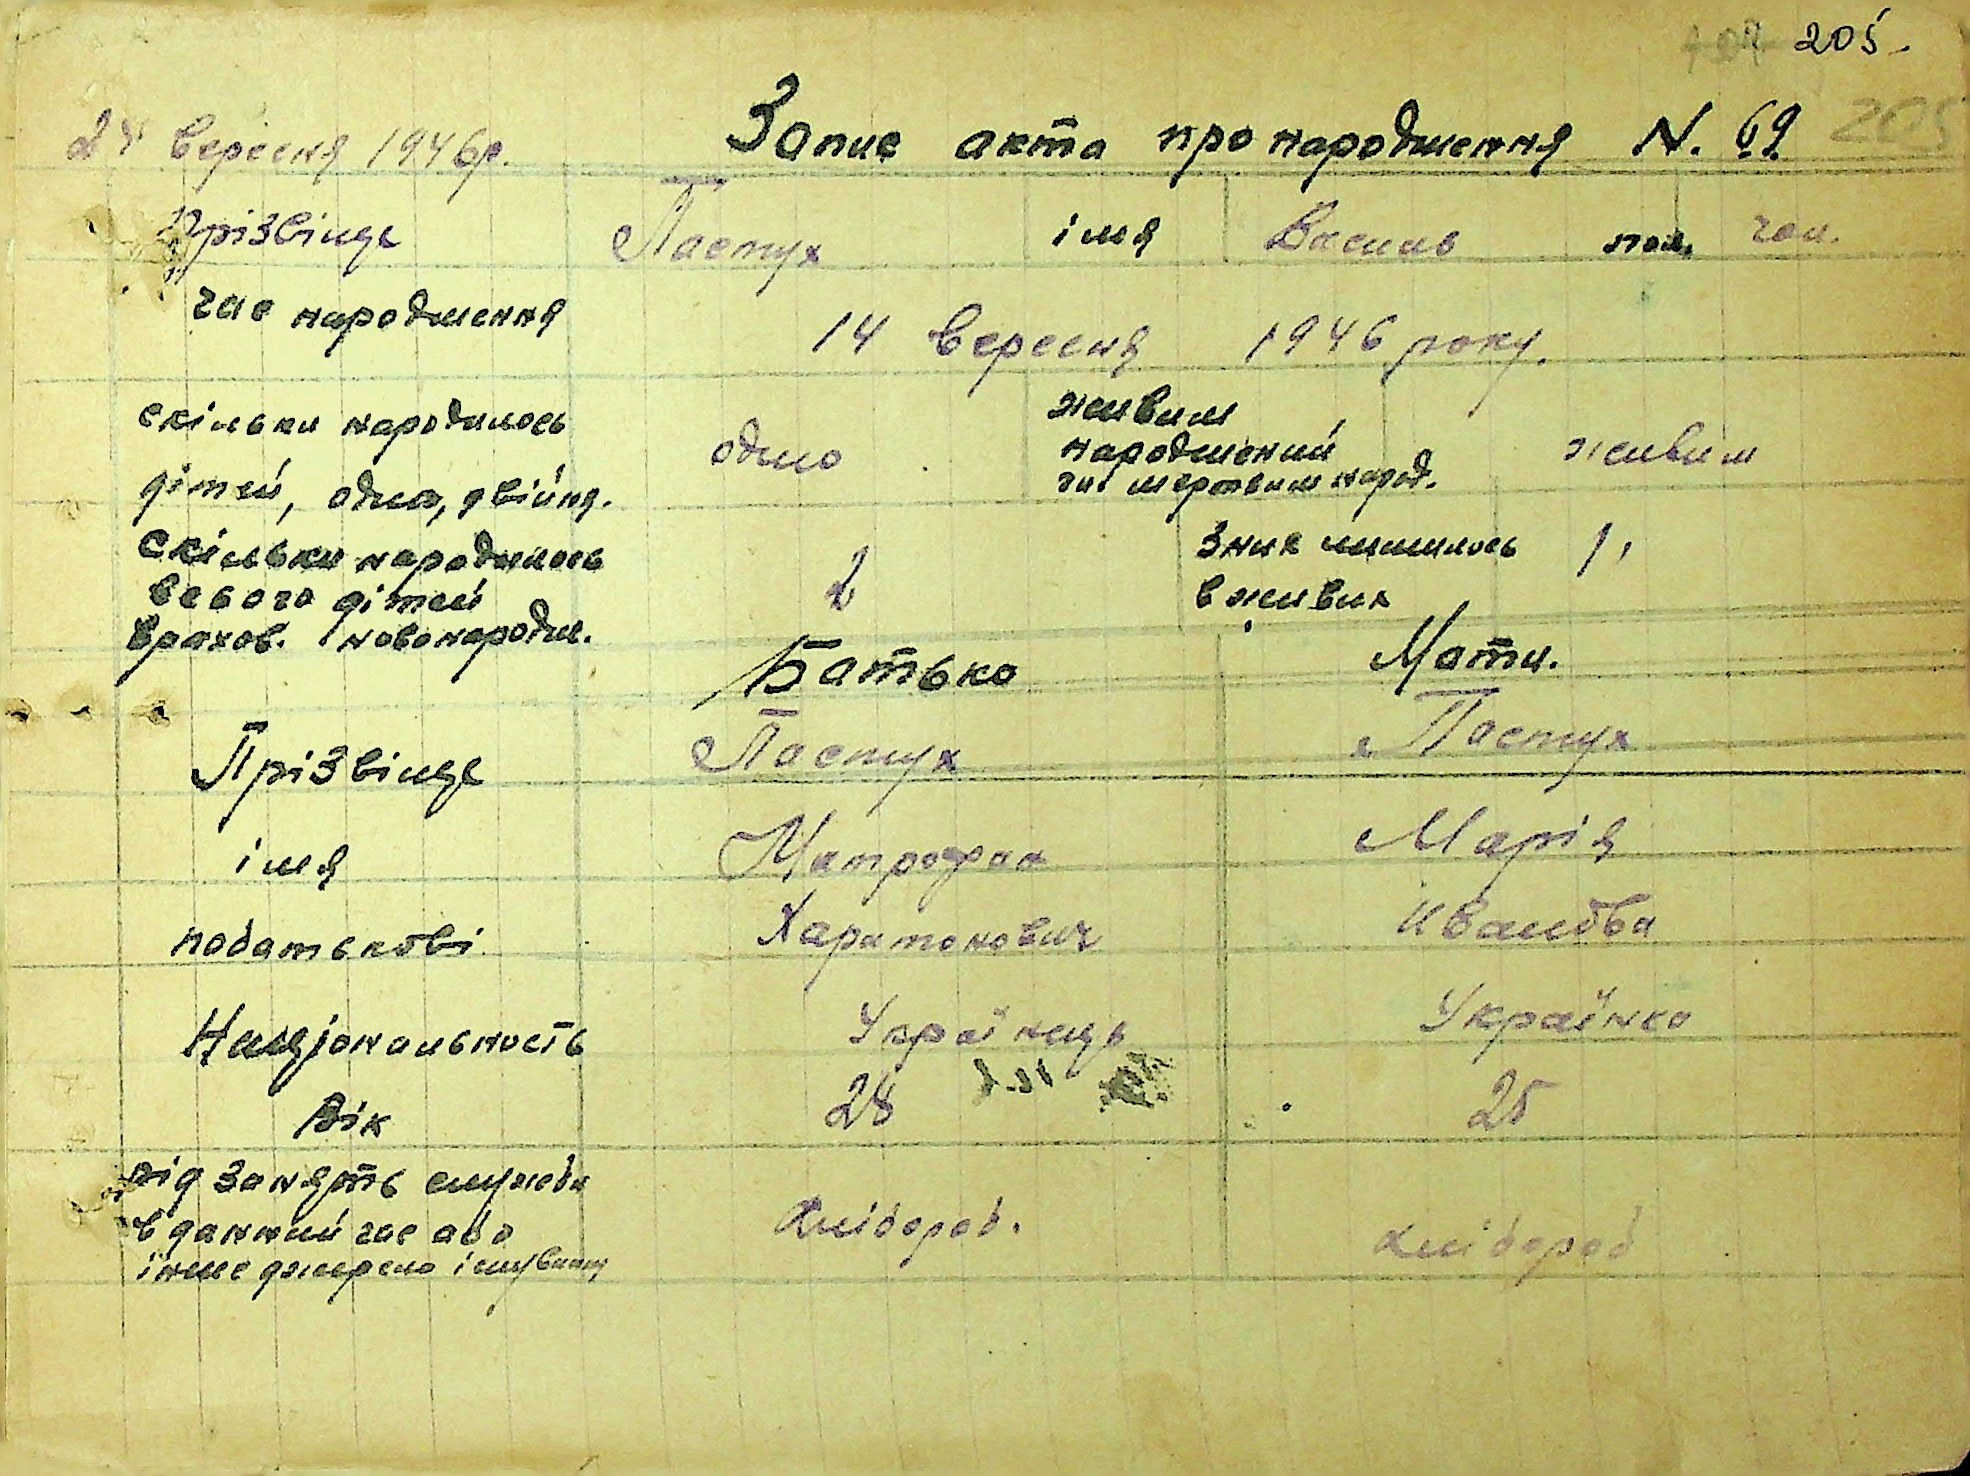 205
24 вересня 1946р. Запис акта про народження N. 69 205
Прізвище Пастух імя Василь пол. чол.
час народження 14 вересня 1946 року.
скільки народилось
дітей, одно, двійня. одно
живим
народжений
чи мертвим народ. живим
Скільки народилось
всього дітей
врахов. новонародж. 2
З них лишилось
в живих 1
Батько Мати.
Прізвище Пастух Пастух
імя Митрофан Марія
побатькові Харитонович Ивановна
Національность Українець Українка
Вік 28 25
рід занять служби
в данний час або
інше джерело існування
хлібороб. хлібороб